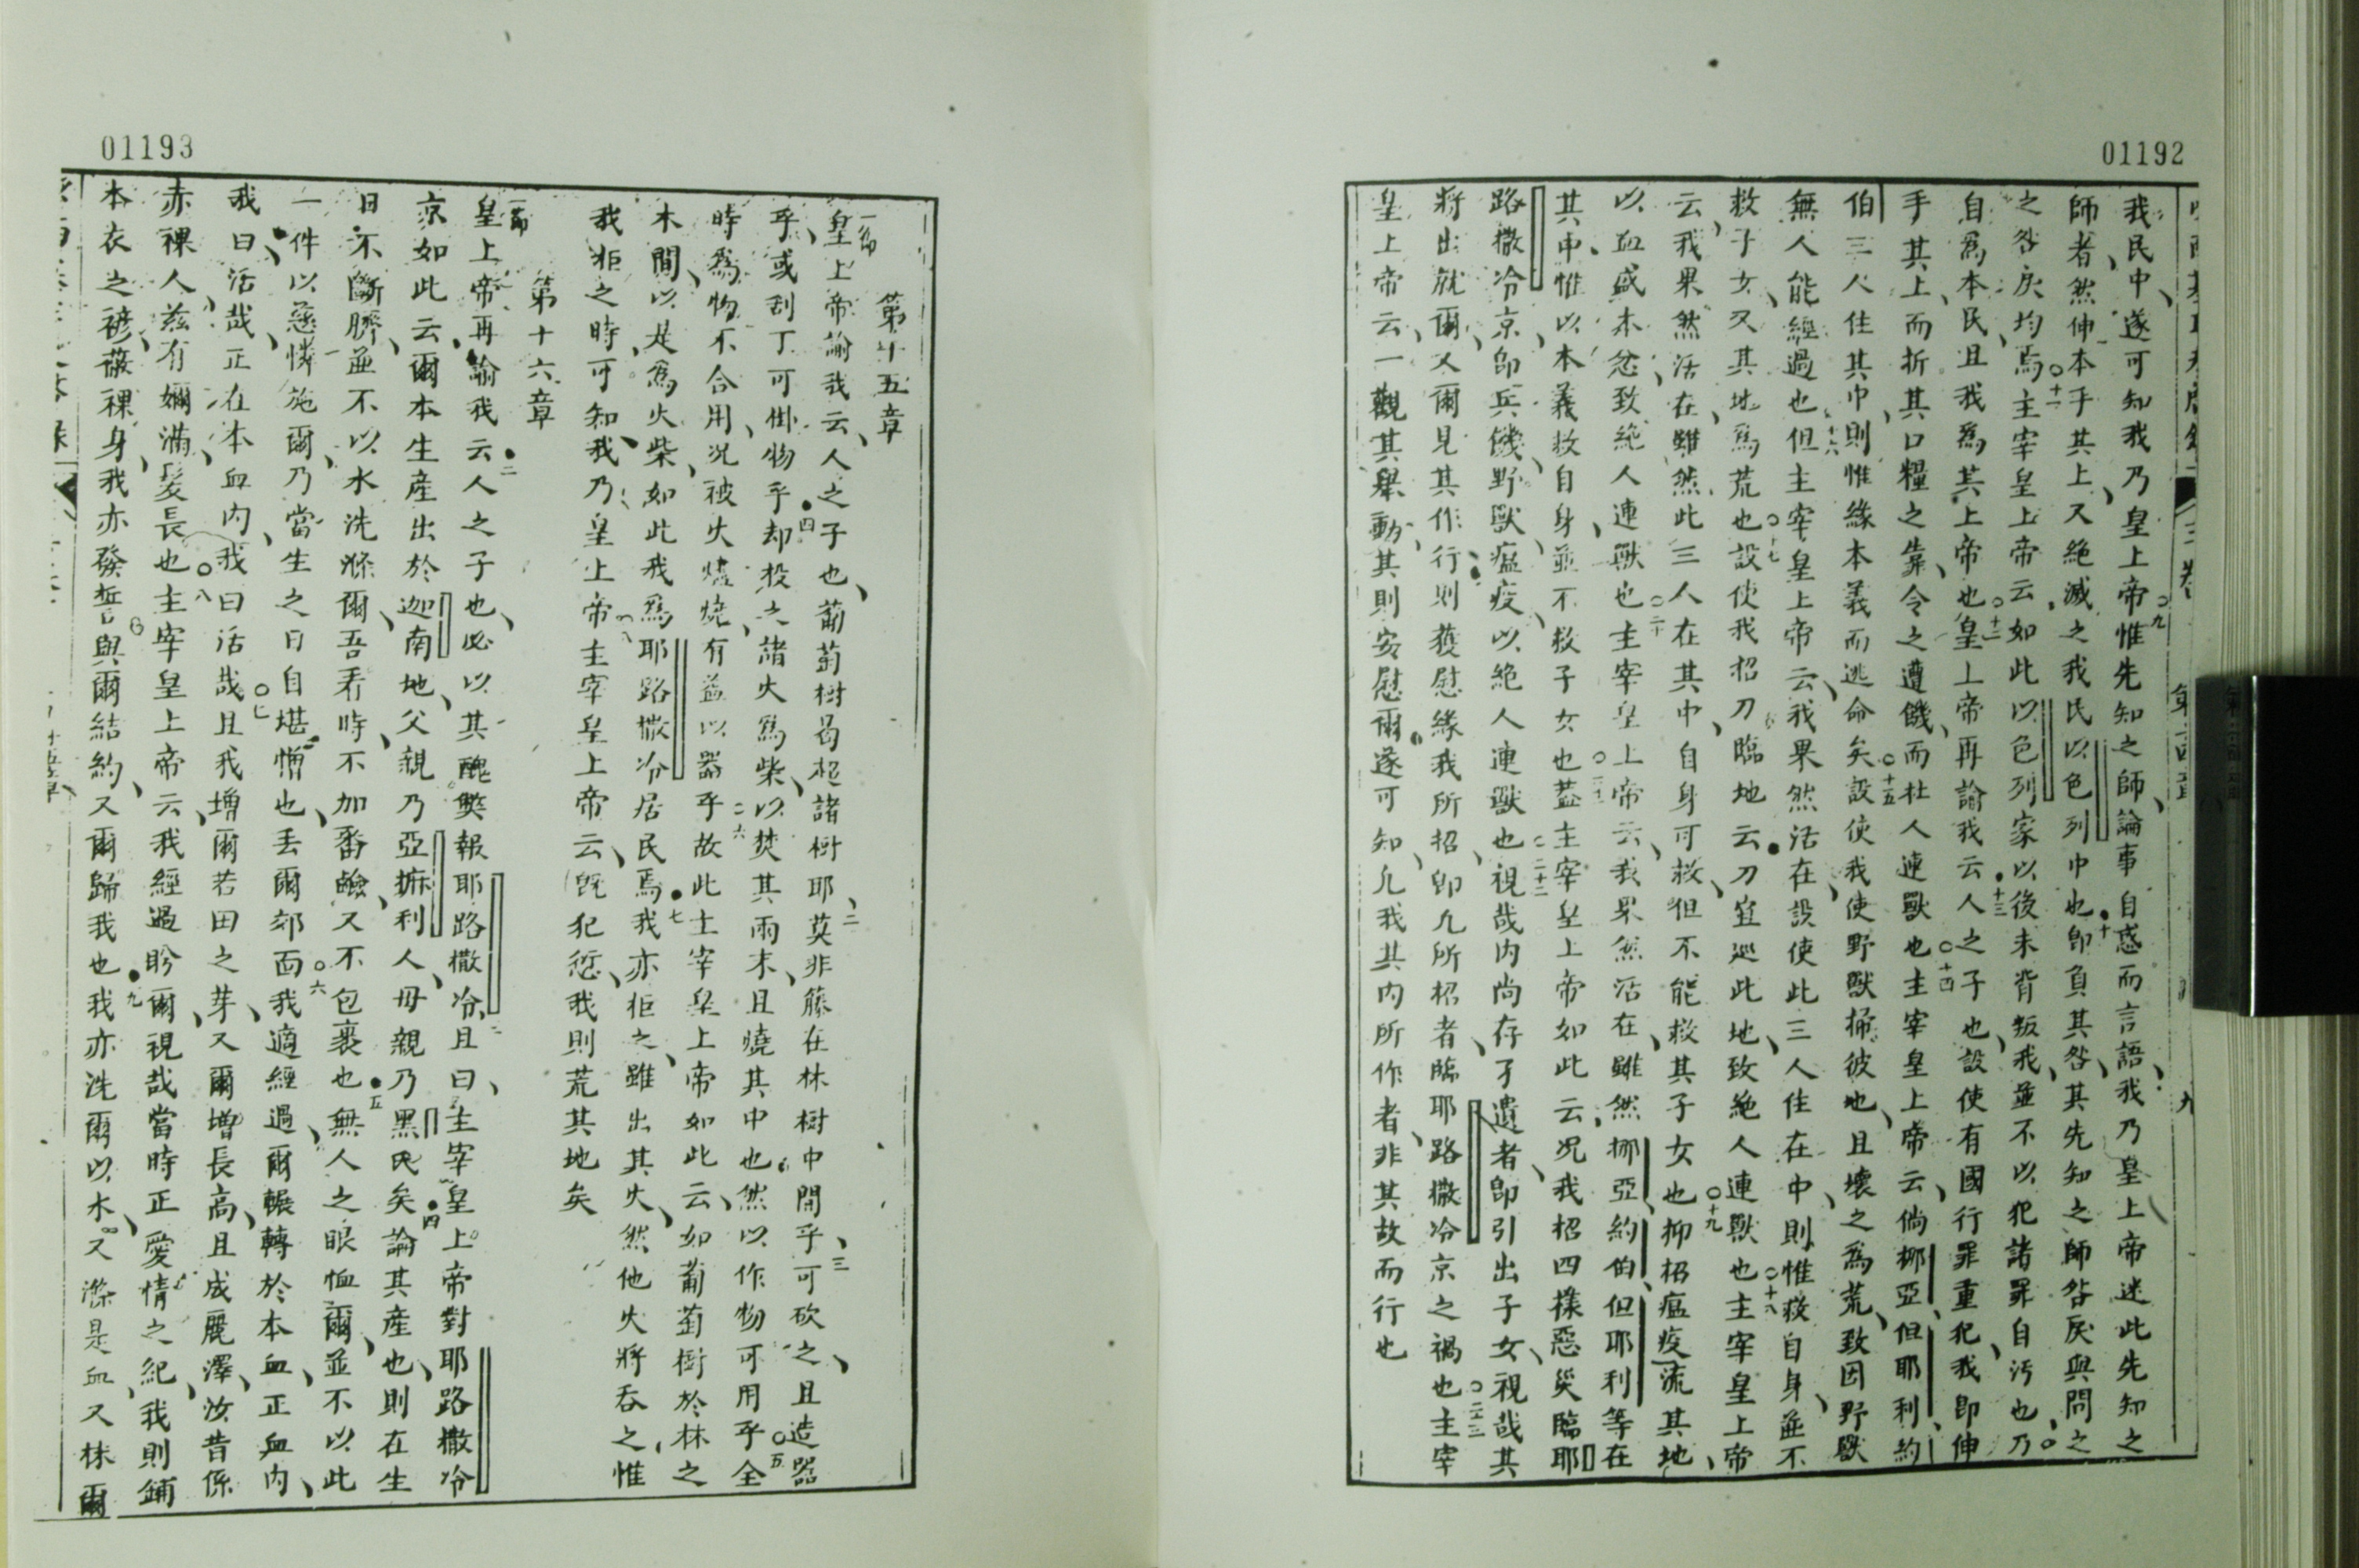 01192
我民中遂可知我乃皇上帝○九惟先知之師論事自惑而言語我乃皇上帝迷此先知之
師者然伸本手其上又絶滅之我民以色列中也●十即負其咎其先知之師咎戾與問之
之咎戾均焉○十一主宰皇上帝云如此以色列家以後未背叛我並不以犯諸罪自污也乃
自爲本民且我爲其上帝也○十二皇上帝再諭我云●十三人之子也設使有國行罪重犯我即伸
手其上而折其口糧之靠令之遭饑而杜人連獸也○十四主宰皇上帝云倘挪亞但耶利約
伯三人住其中則惟緣本義而逃命矣○十五設使我使野獸掃彼地且壞之爲荒致因野獸
無人能經過也十六但主宰皇上帝云我果然活在設使此三人住在中則惟救自身並不
救子女又其地爲荒也○十七設使我招刀臨地云刀宜巡此地致絶人連獸也○十八主宰皇上帝
云我果然活在雖然此三人在其中自身可救但不能救其子女也○十九抑招瘟疫流其地
以血盛本忿致絶人連獸也○二十主宰皇上帝云我果然活在雖然挪亞約伯但耶利等在
其中惟以本義救自身並不救子女也○二十一蓋主宰皇上帝如此云况我招四樣惡災臨耶
路撒冷京即兵饑野獸瘟疫以絶人連獸也○二十二視哉内尚存孑遺者即引出子女視哉其
將出就爾又爾見其作行則獲慰緣我所招即凡所招者臨耶路撒冷京之禍也○二十三主宰
皇上帝云一觀其舉動其則安慰爾遂可知凡我其内所作者非其故而行也
01193
第十五章
一節皇上帝諭我云人之子也葡萄樹曷超諸樹耶二莫非藤在林樹中間乎三可砍之且造器
乎或刮丁可掛物乎●四却投之諸火爲柴以焚其兩末且燒其中也然以作物可用乎○五全
時爲物不合用况被火燼燒有益以器乎二六故此主宰皇上帝如此云如葡萄樹於林之
木間以是爲火柴如此我爲耶路撒冷居民焉●七我亦拒之雖出其火然他火將吞之惟
我拒之時可知我乃皇上帝八主宰皇上帝云既犯愆我則荒其地矣
第十六章
一節皇上帝再諭我云●二人之子也必以其醜弊報耶路撒冷三且曰主宰皇上帝對耶路撒冷
京如此云爾本生産出於迦南地父親乃亞摭利人母親乃黑氏矣●四論其産也則在生
日不斷臍並不以水洗滌爾吾看時不加番鹼又不包裹也●五無人之眼恤爾並不以此
一件以慈憐施爾乃當生之日自堪憎也丢爾郊面○六我適經過爾輾轉於本血正血内
我曰活哉正在本血内我曰活哉○七且我增爾若田之芽又爾增長高且成麗澤汝昔係
赤裸人兹有嬭滿髮長也○八主宰皇上帝云我經過盻爾視哉當時正愛情之紀我則鋪
本衣之褲蔽裸身我亦發誓與爾結約又爾歸我也●九我亦洗爾以水又滌是血又抹爾